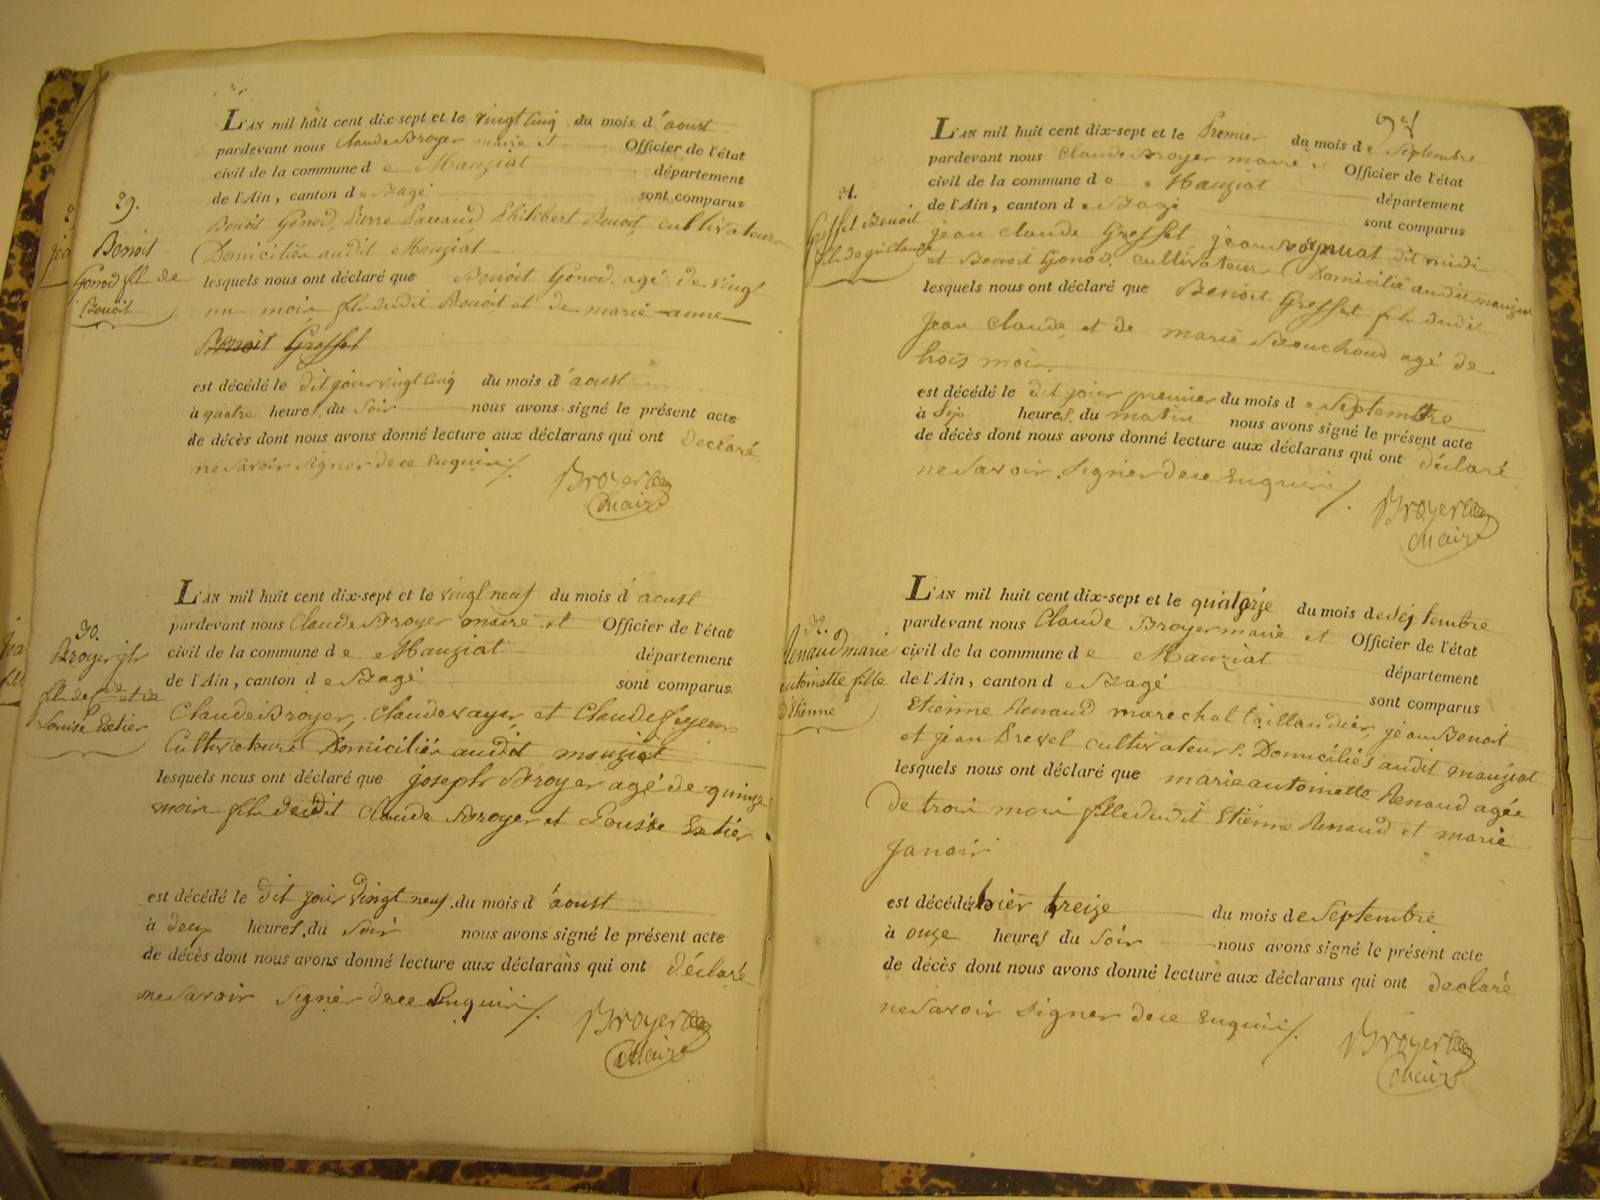 29.
Benoit
Gonod fils de
Benoit
L'AN mil huit cent dix-sept et le vingt cinq du mois d'aoust
pardevant nous Claude Broyer maire et Officier de l'état
civil de la commune de Manziat département
de l'Ain, canton de Bagé sont comparus
Benoit Gonod, Pierre Pacaud, Philibert Benoit, cultivateurs
Domiciliés audit Manziat
lesquels nous ont déclaré que Benoit Gonod agé de vingt
un mois fils dudit Benoit et de marie anne
Benoit Grosset
est décédé le dit jour vingt cinq du mois d'aoust
à quatre heures du Soir nous avons signé le présent acte
de décès dont nous avons donné lecture aux déclarans qui ont Declaré
ne Savoir Signer de ce Enquis /.
Broyer
Maire
30.
Broyer jph
fils de Cde et de
Louise Extier
L'AN mil huit cent dix-sept et le vingt neuf du mois d'aoust
pardevant nous Claude Broyer maire et Officier de l'état
civil de la commune de Manziat département
de l'Ain, canton de Bagé sont comparus
Claude Broyer, Claude vayer et Claude
Cultivateurs Domiciliés audit manziat
lesquels nous ont déclaré que joseph Broyer agé de quinze
mois fils dudit Claude Broyer et Louise Extier
est décédé le dit jour vingt neuf du mois d'aoust
à deux heures du Soir nous avons signé le présent acte
de décès dont nous avons donné lecture aux déclarans qui ont déclaré
ne Savoir Signer de ce Enquis /.
Broyer
Maire
31.
Grosset Benoit
fils de jn Claude
L'AN mil huit cent dix-sept et le Premier du mois de Septembre
pardevant nous Claude Broyer maire et Officier de l'état
civil de la commune de Manziat département
de l'Ain, canton de Bagé sont comparus
jean Claude Grosset jean voynuat dit midi
et Benoit Gonod. cultivateurs Domiciliés audit manziat
lesquels nous ont déclaré que Benoit Grosset fils dudit
Jean Claude et de marie Bouchoud agé de
trois mois.
est décédé le dit jour premier du mois de Septembre
à Six heures du matin nous avons signé le présent acte
de décès dont nous avons donné lecture aux déclarans qui ont déclaré
ne Savoir Signer de ce Enquis /.
Broyer
Maire
32.
Renaud marie
antoinette fille
d'Etienne
L'AN mil huit cent dix-sept et le quatorze du mois de Septembre
pardevant nous Claude Broyer maire et Officier de l'état
civil de la commune de Manziat département
de l'Ain, canton de Bagé sont comparus
Etienne Renaud marechal taillandier, jean Benoit
et jean Prevel cultivateurs. Domiciliés audit manziat
lesquels nous ont déclaré que marie antoinette Renaud agée
De trois mois fille dudit Etienne Renaud et marie
Janoir
est décédé hier treize du mois de Septembre
à onze heures du Soir nous avons signé le présent acte
de décès dont nous avons donné lecture aux déclarans qui ont declaré
ne Savoir Signer de ce Enquis /.
Broyer
Maire